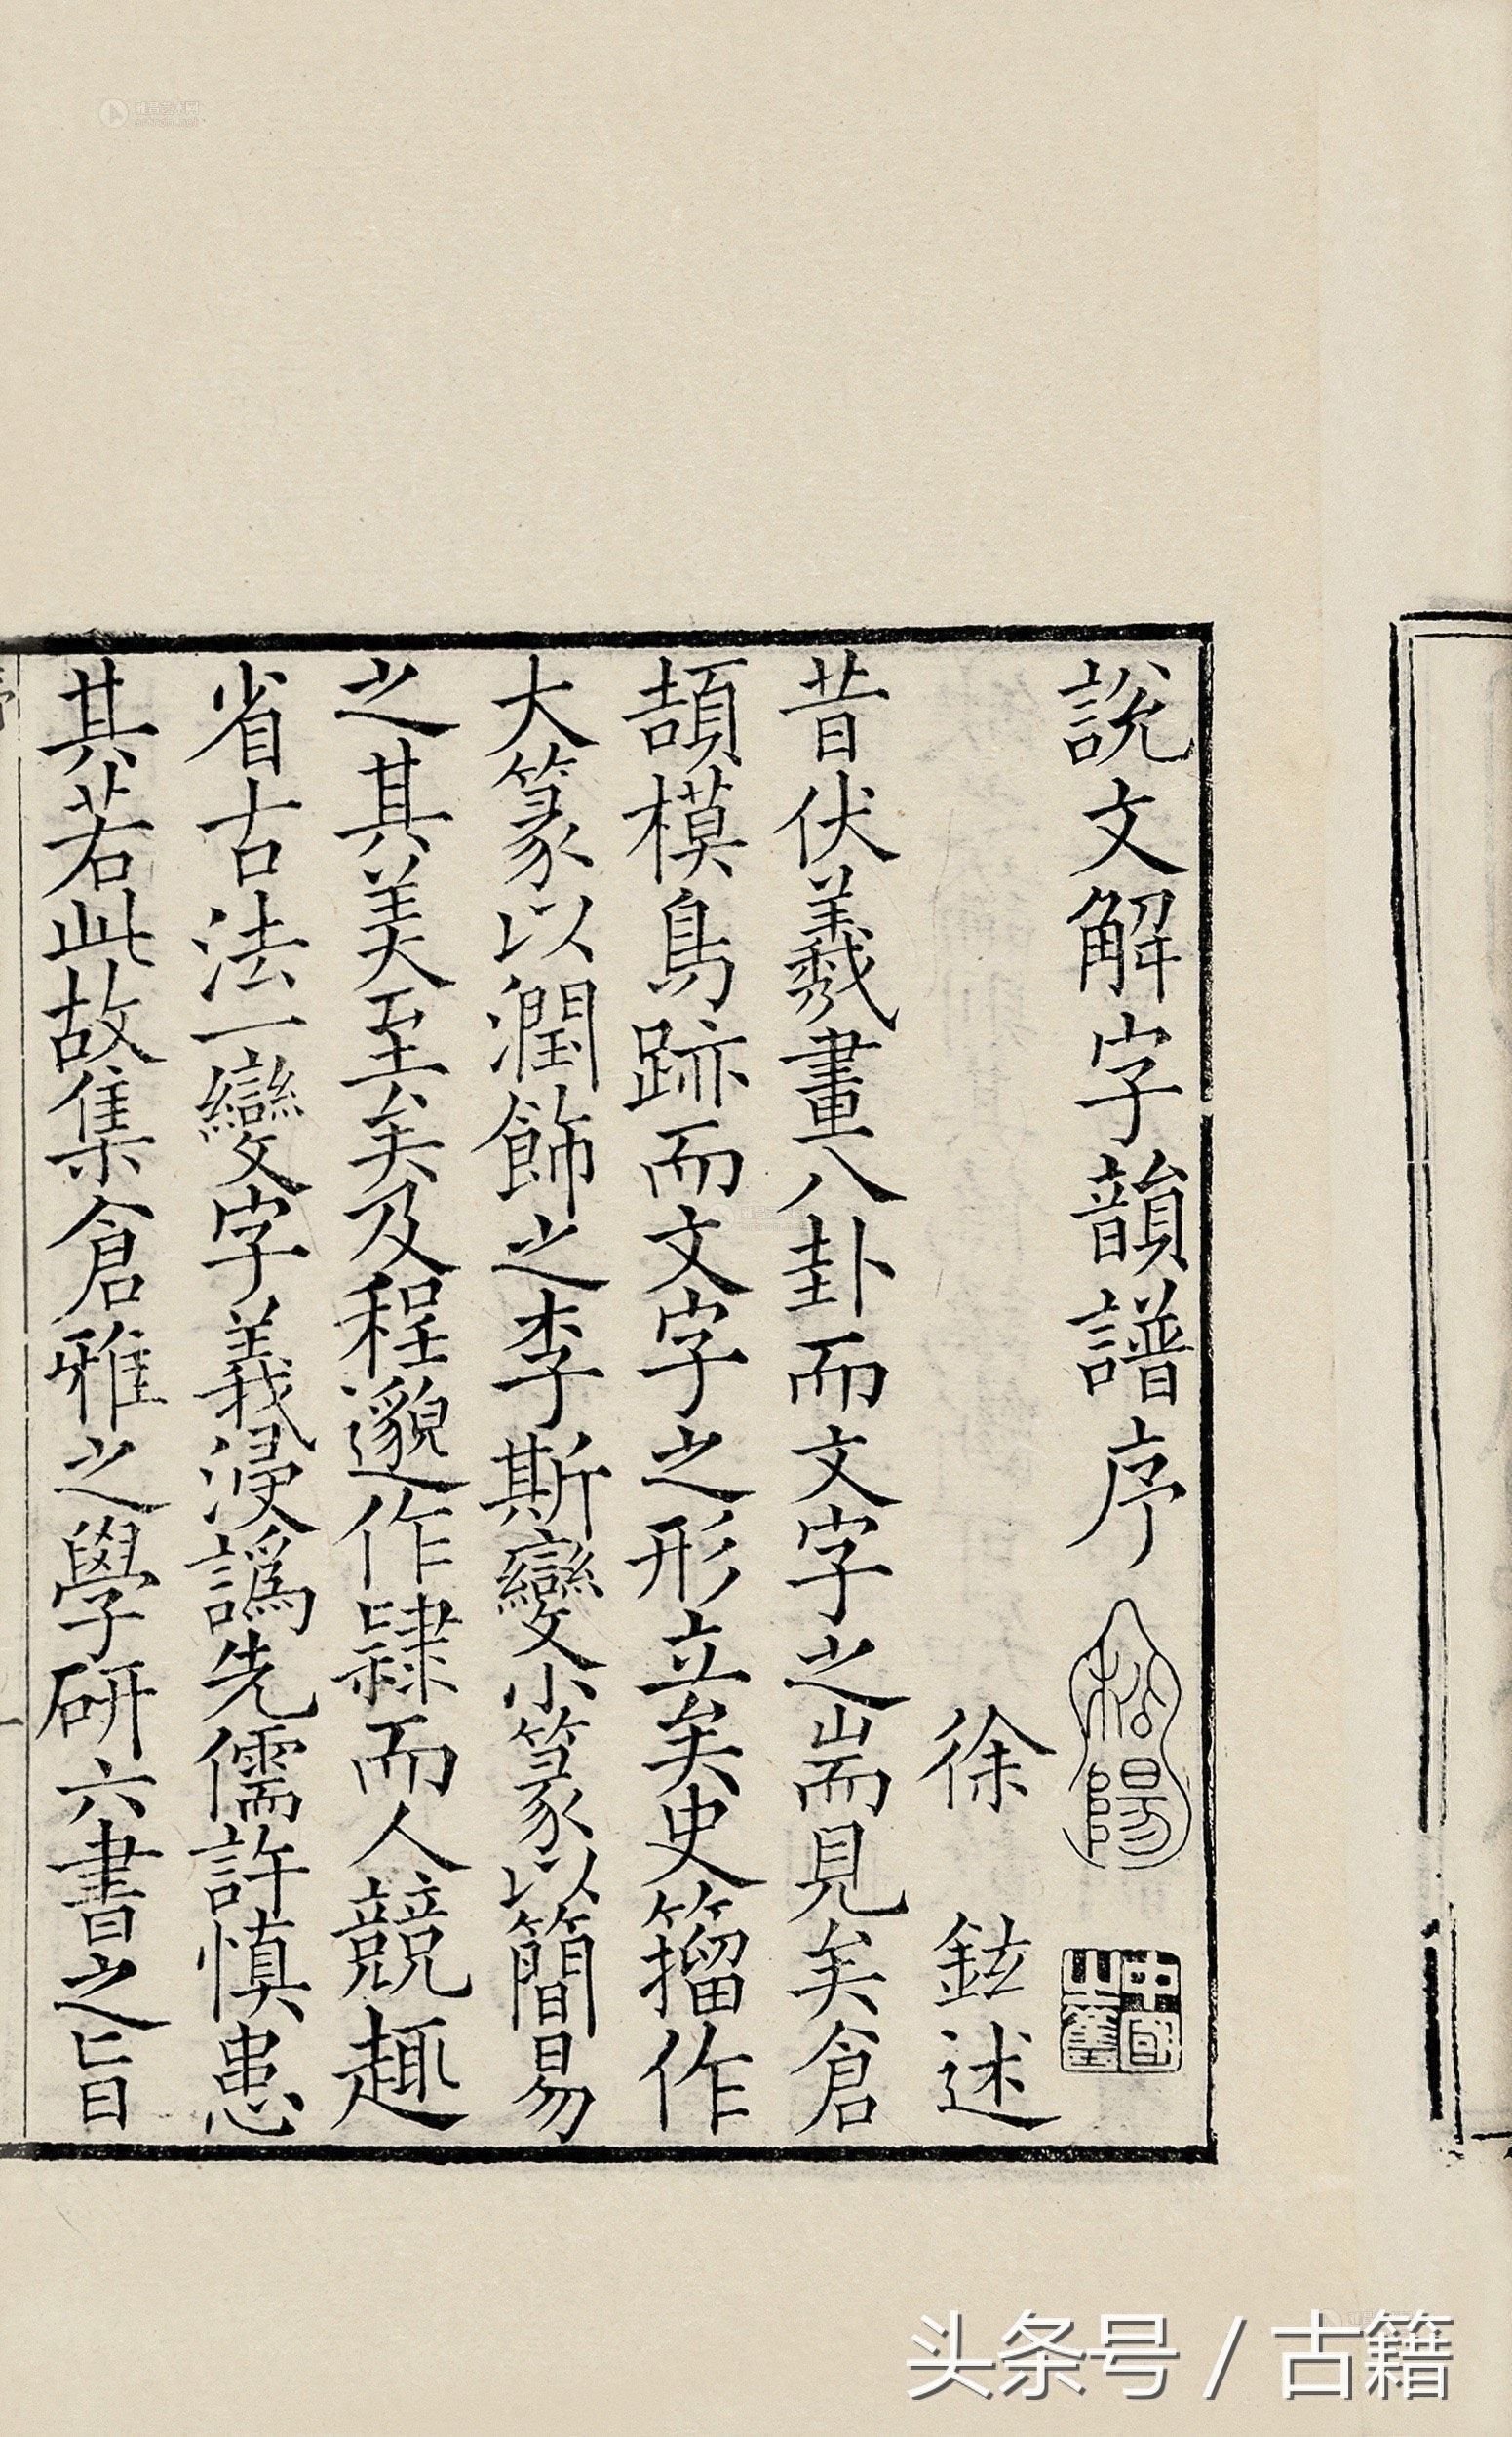 說文解字韻譜序
徐鉉述
昔伏羲畫八卦而文字之耑見矣倉
頡模鳥跡而文字之形立矣史籀作
大篆以潤飾之李斯變小篆以簡易
之其美至矣及程邈作隷而人競趣
省古法一變字義浸譌先儒許慎患
其若此故集倉雅之學研六書之旨
头条号 / 古籍